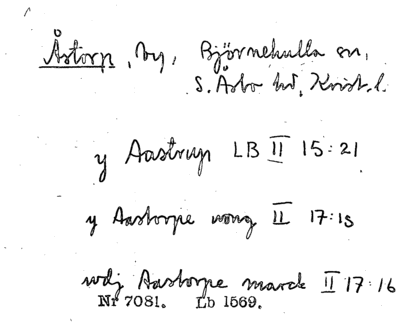 Åstorp, by, Björnekulla sn,
S. Åsbo hd, Krist. l.
y Aastrup LB II 15:21
y Aastorpe wong II 17:15
wdj Aastorpe marck II 17:16
Nr 7081. Lb 1569.